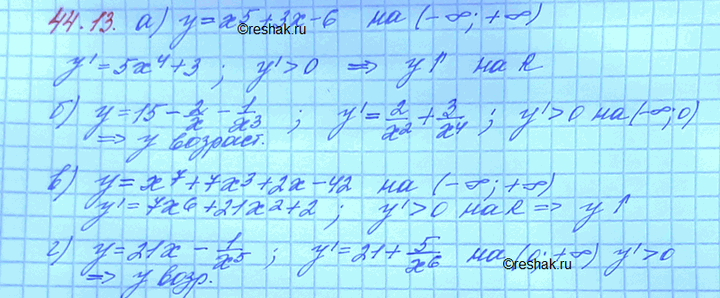 44.13. а) y = x5 + 3x - 6 на (-∞; +∞)
©reshak.ru
y' = 5x⁴ + 3 ; y' > 0 ⇒ y↑ на R
б) y = 15 - 2/x - 1/x3 ; y' = 2/x2 + 3/x4 ; y' > 0 на (-∞; 0)
⇒ y возраст.
в) y = x7 + 7x3 + 2x - 42 на (-∞; +∞)
y' = 7x6 + 21x2 + 2 ; y' > 0 на R ⇒ y↑
г) y = 21x - 1/x5 ; y' = 21 + 5/x6 на (0; +∞) y' > 0
©reshak.ru
⇒ y возр.